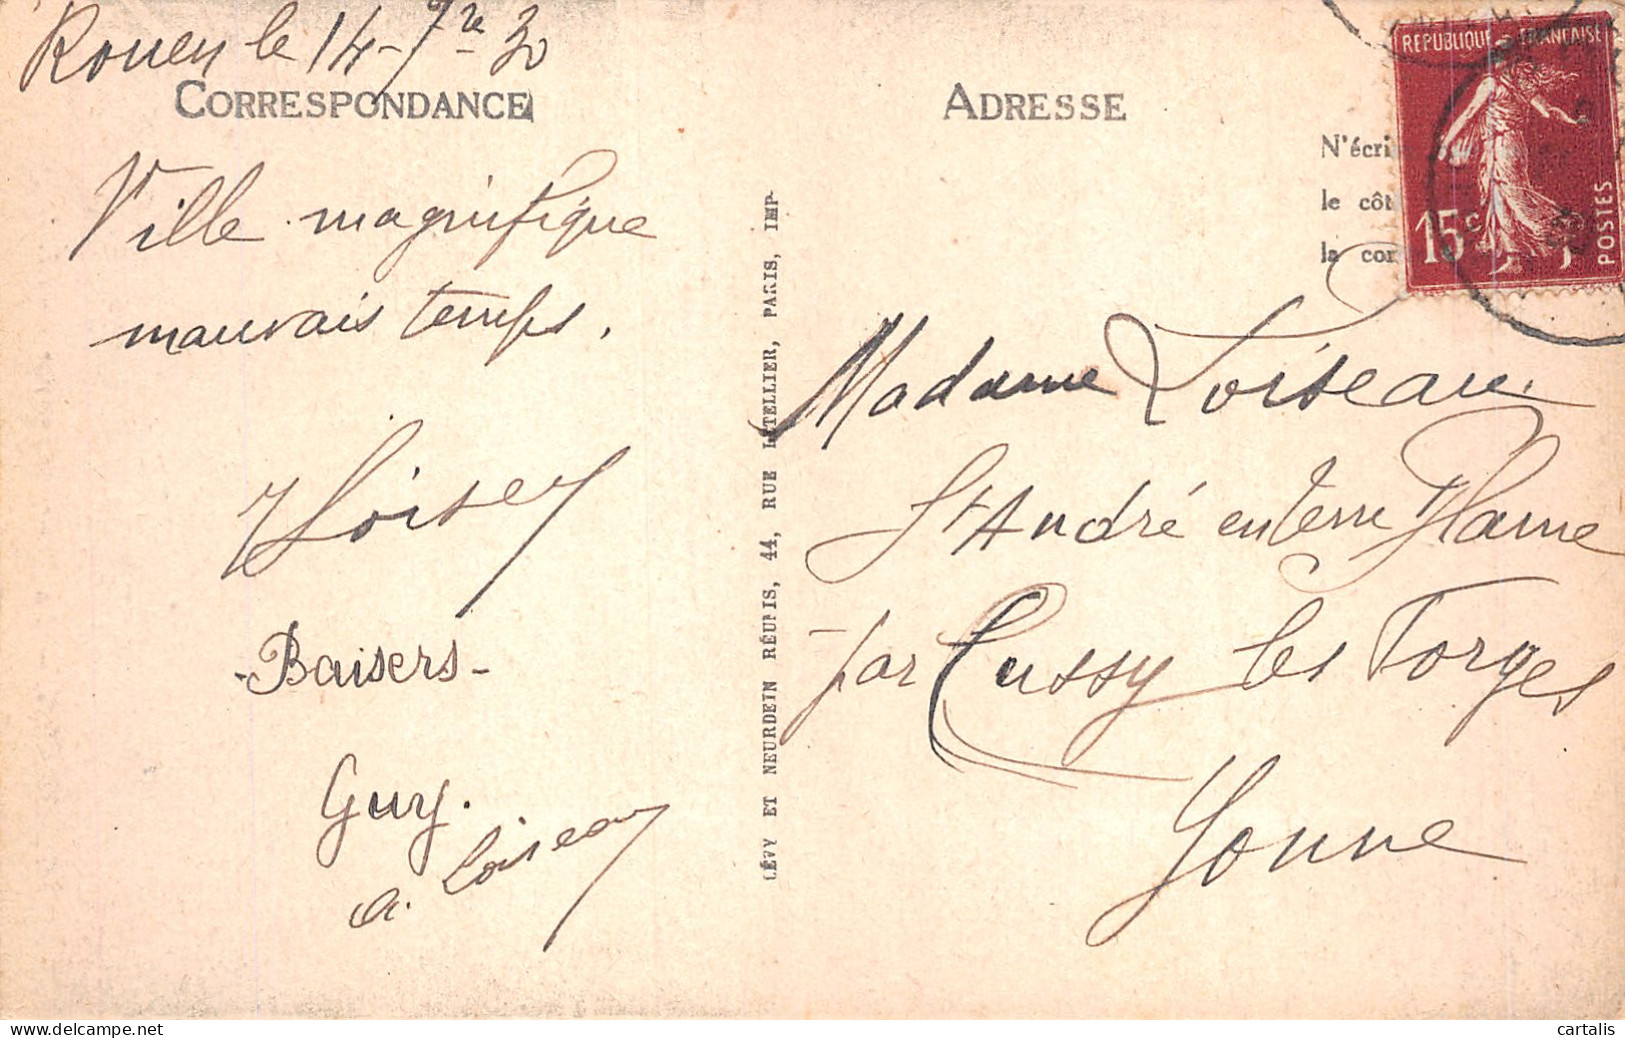 Rouen le 14-7re 30
CORRESPONDANCE
Ville magnifique
mauvais temps.
-Baisers-
Guy.
a. Loiseau
LÉVY ET NEURDEIN RÉUNIS, 44, RUE LETELLIER, PARIS, IMP.
ADRESSE
N'écri
le côt
la cor
REPUBLIQUE - FRANÇAISE
15c
POSTES
Madame Loiseau.
St André en terre Plaine
par Cussy les Forges
Yonne
www.delcampe.net
cartalis